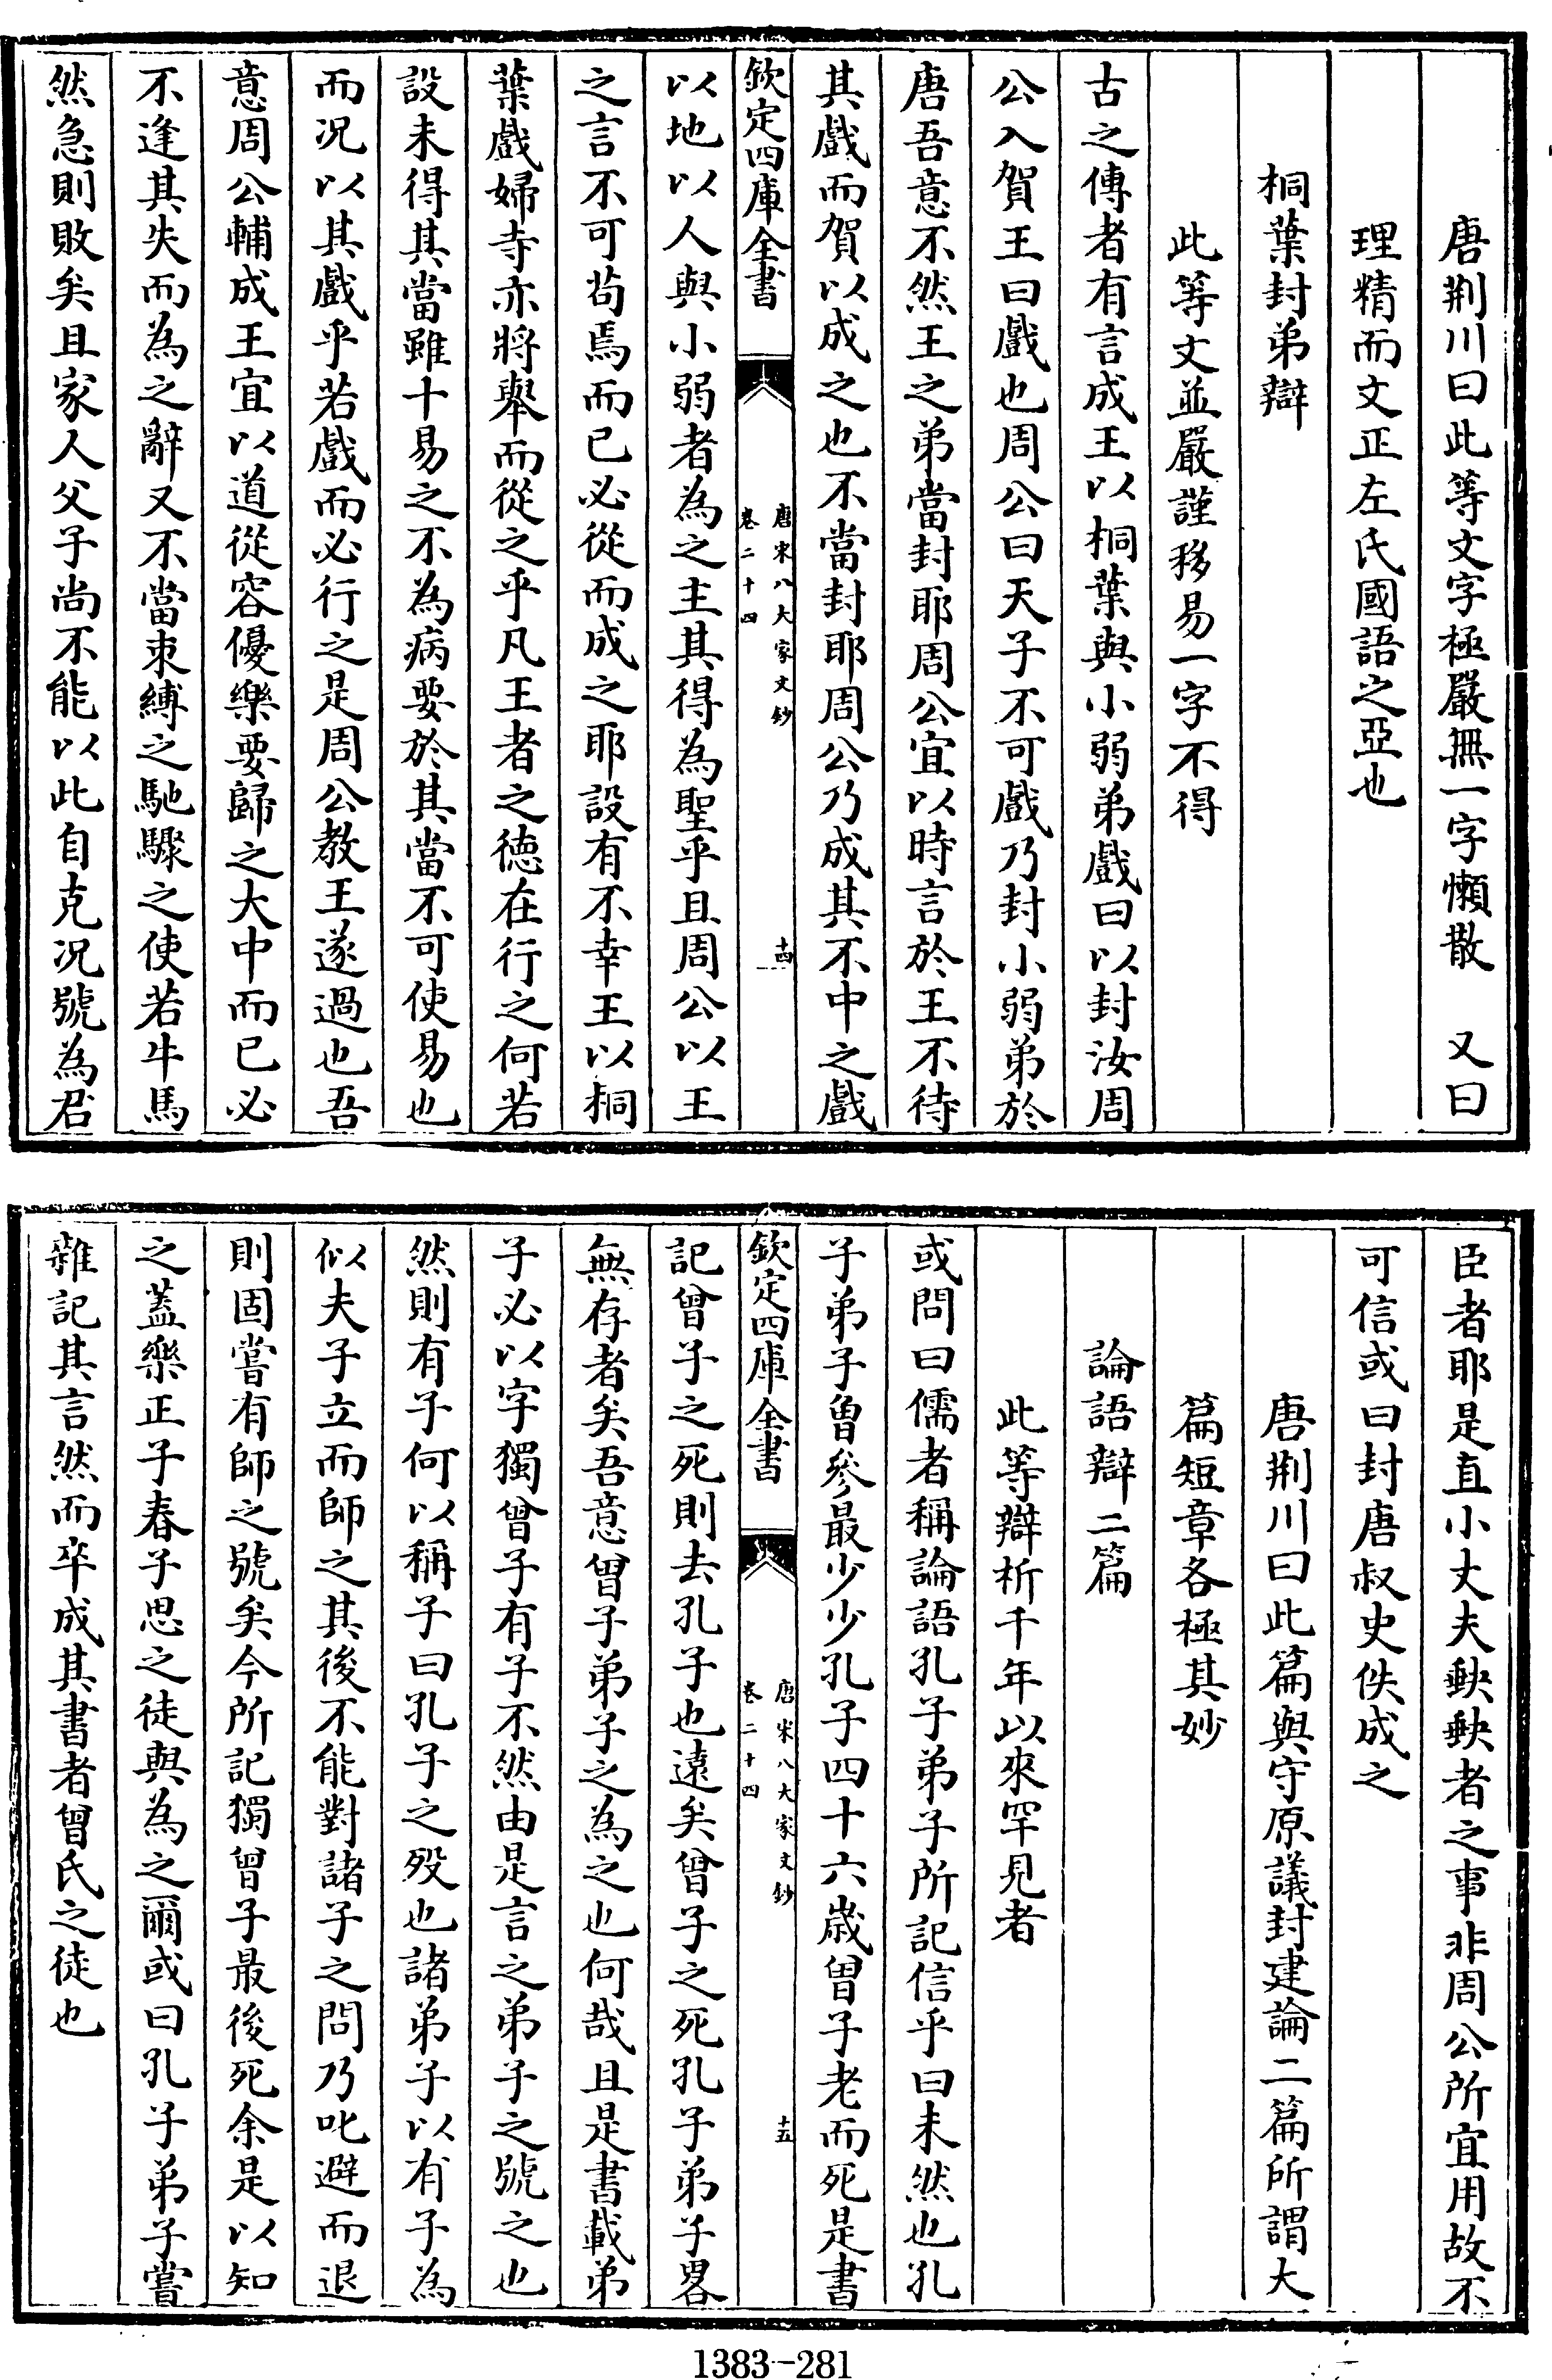 唐荆川曰此等文字極嚴無一字懶散　又曰
理精而文正左氏國語之亞也
桐葉封弟辯
此等文並嚴謹移易一字不得
古之傳者有言成王以桐葉與小弱弟戲曰以封汝周
公入賀王曰戲也周公曰天子不可戲乃封小弱弟於
唐吾意不然王之弟當封耶周公宜以時言於王不待
其戲而賀以成之也不當封耶周公乃成其不中之戲
欽定四庫全書
唐宋八大家文鈔
卷二十四
十四
以地以人與小弱者為之主其得為聖乎且周公以王
之言不可茍焉而已必從而成之耶設有不幸王以桐
葉戲婦寺亦將舉而從之乎凡王者之德在行之何若
設未得其當雖十易之不為病要於其當不可使易也
而况以其戲乎若戲而必行之是周公教王遂過也吾
意周公輔成王宜以道從容優樂要歸之大中而已必
不逢其失而為之辭又不當束縛之馳驟之使若牛馬
然急則敗矣且家人父子尚不能以此自克况號為君
臣者耶是直小丈夫缺缺者之事非周公所宜用故不
可信或曰封唐叔史佚成之
唐荆川曰此篇與守原議封建論二篇所謂大
篇短章各極其妙
論語辯二篇
此等辯析千年以來罕見者
或問曰儒者稱論語孔子弟子所記信乎曰未然也孔
子弟子曾參最少少孔子四十六歲曾子老而死是書
欽定四庫全書
唐宋八大家文鈔
卷二十四
十五
記曾子之死則去孔子也遠矣曾子之死孔子弟子畧
無存者矣吾意曾子弟子之為之也何哉且是書載弟
子必以字獨曾子有子不然由是言之弟子之號之也
然則有子何以稱子曰孔子之殁也諸弟子以有子為
似夫子立而師之其後不能對諸子之問乃叱避而退
則固嘗有師之號矣今所記獨曾子最後死余是以知
之蓋樂正子春子思之徒與為之爾或曰孔子弟子嘗
雜記其言然而卒成其書者曾氏之徒也
1383-281